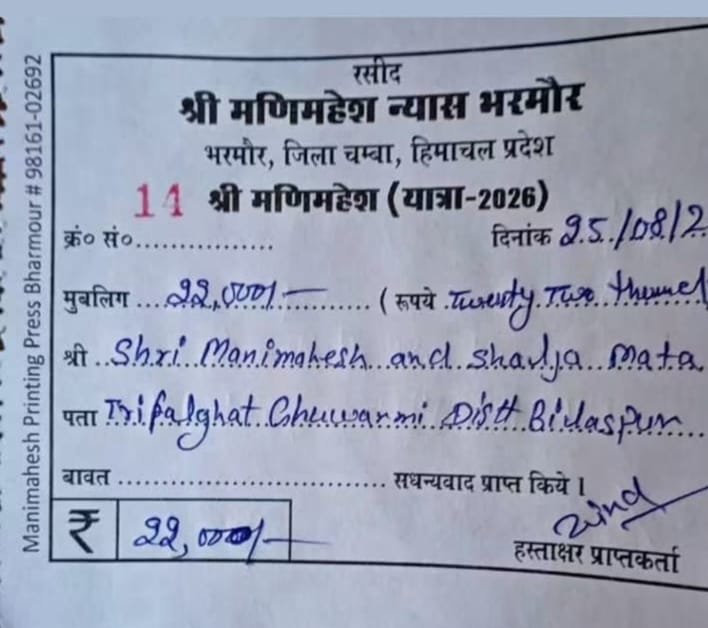 रसीद
श्री मणिमहेश न्यास भरमौर
भरमौर, जिला चम्बा, हिमाचल प्रदेश
14 श्री मणिमहेश (यात्रा-2026)
क्रं० सं०................ दिनांक 25/08/2
मुबलिग ... 22,000/- ............ ( रूपये Twenty Two
श्री .. Shri Manimahesh and Mata
पता Distt Bilaspur
बावत ................................ सधन्यवाद प्राप्त किये ।
₹ 22,000/-
हस्ताक्षर प्राप्तकर्ता
Manimahesh Printing Press Bharmour # 98161-02692